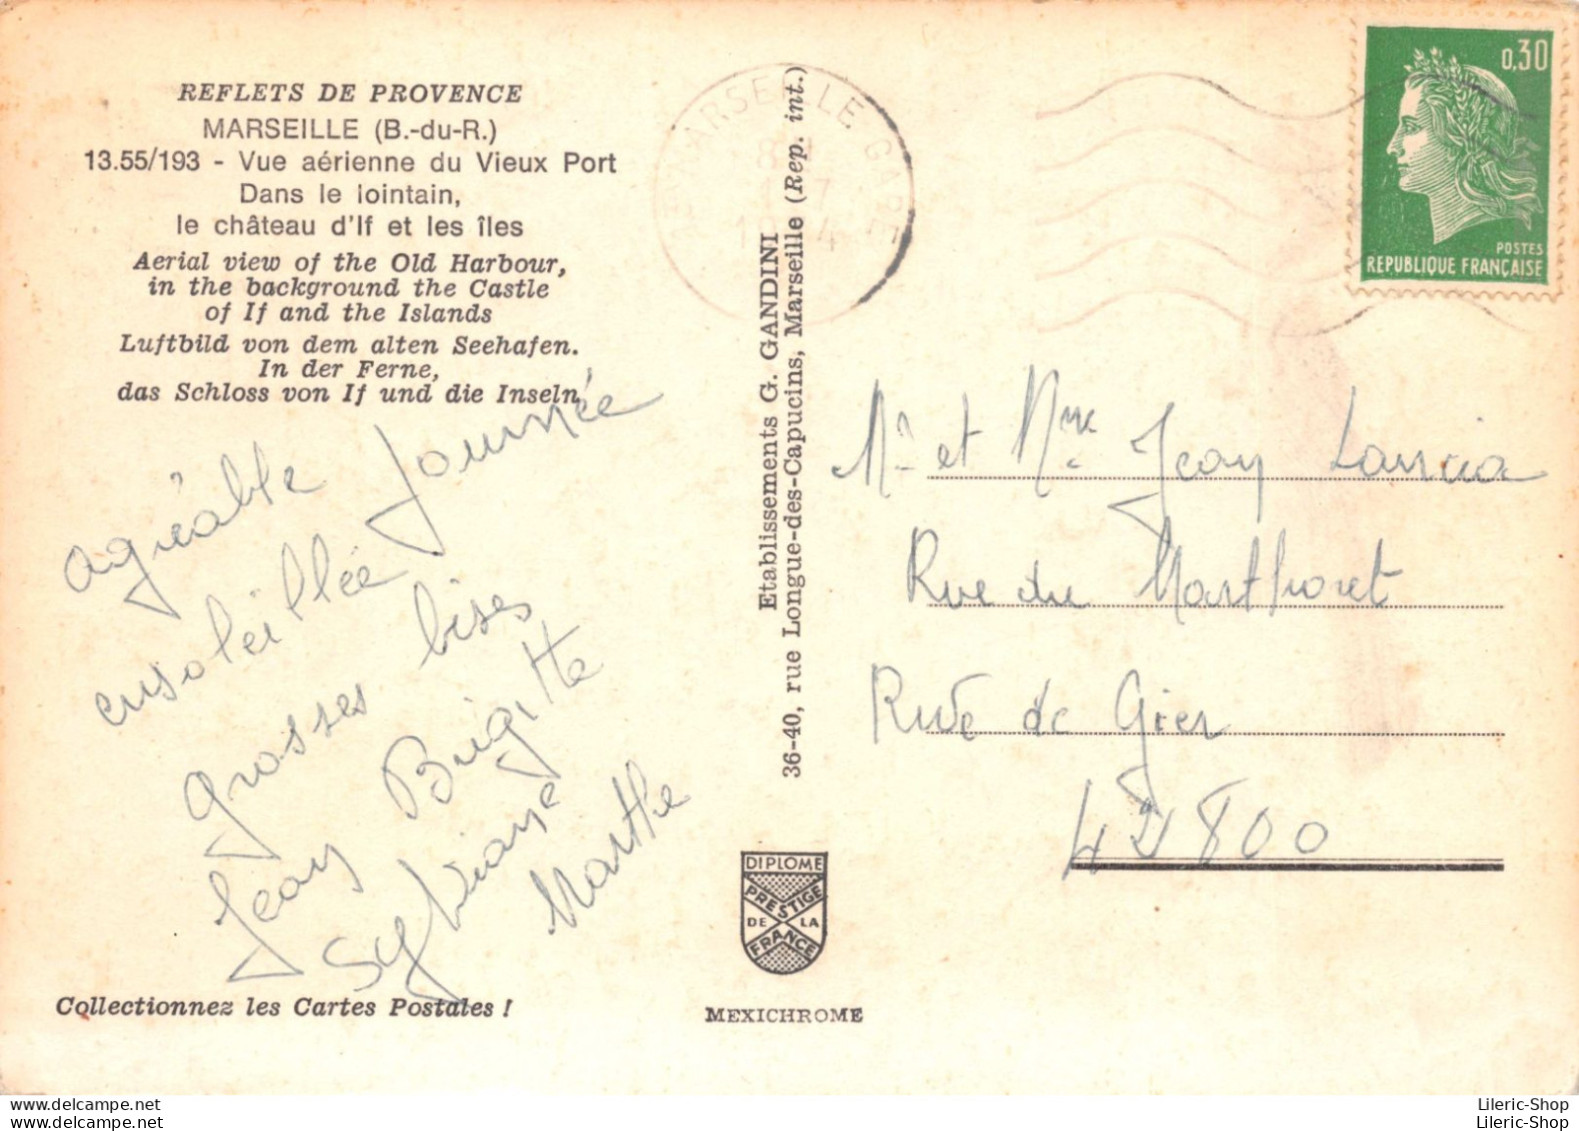 REFLETS DE PROVENCE
MARSEILLE (B.-du-R.)
13.55/193 - Vue aérienne du Vieux Port
Dans le lointain,
le château d'If et les îles
Aerial view of the Old Harbour,
in the background the Castle
of If and the Islands
Luftbild von dem alten Seehafen.
In der Ferne,
das Schloss von If und die Inseln
agréable Journée
ensoleillée
Grosses bises
Jean Brigitte
Sylviane Marthe
Collectionnez les Cartes Postales !
MARSEILLE GARE
Etablissements G. GANDINI
36-40, rue Longue-des-Capucins, Marseille (Rep. int.)
DIPLOME
PRESTIGE
DE LA
FRANCE
MEXICHROME
0,30
POSTES
REPUBLIQUE FRANÇAISE
Mr et Mme Jean
Rue du Marthoret
Rive de Gier
42800
Lileric-Shop
Lileric-Shop